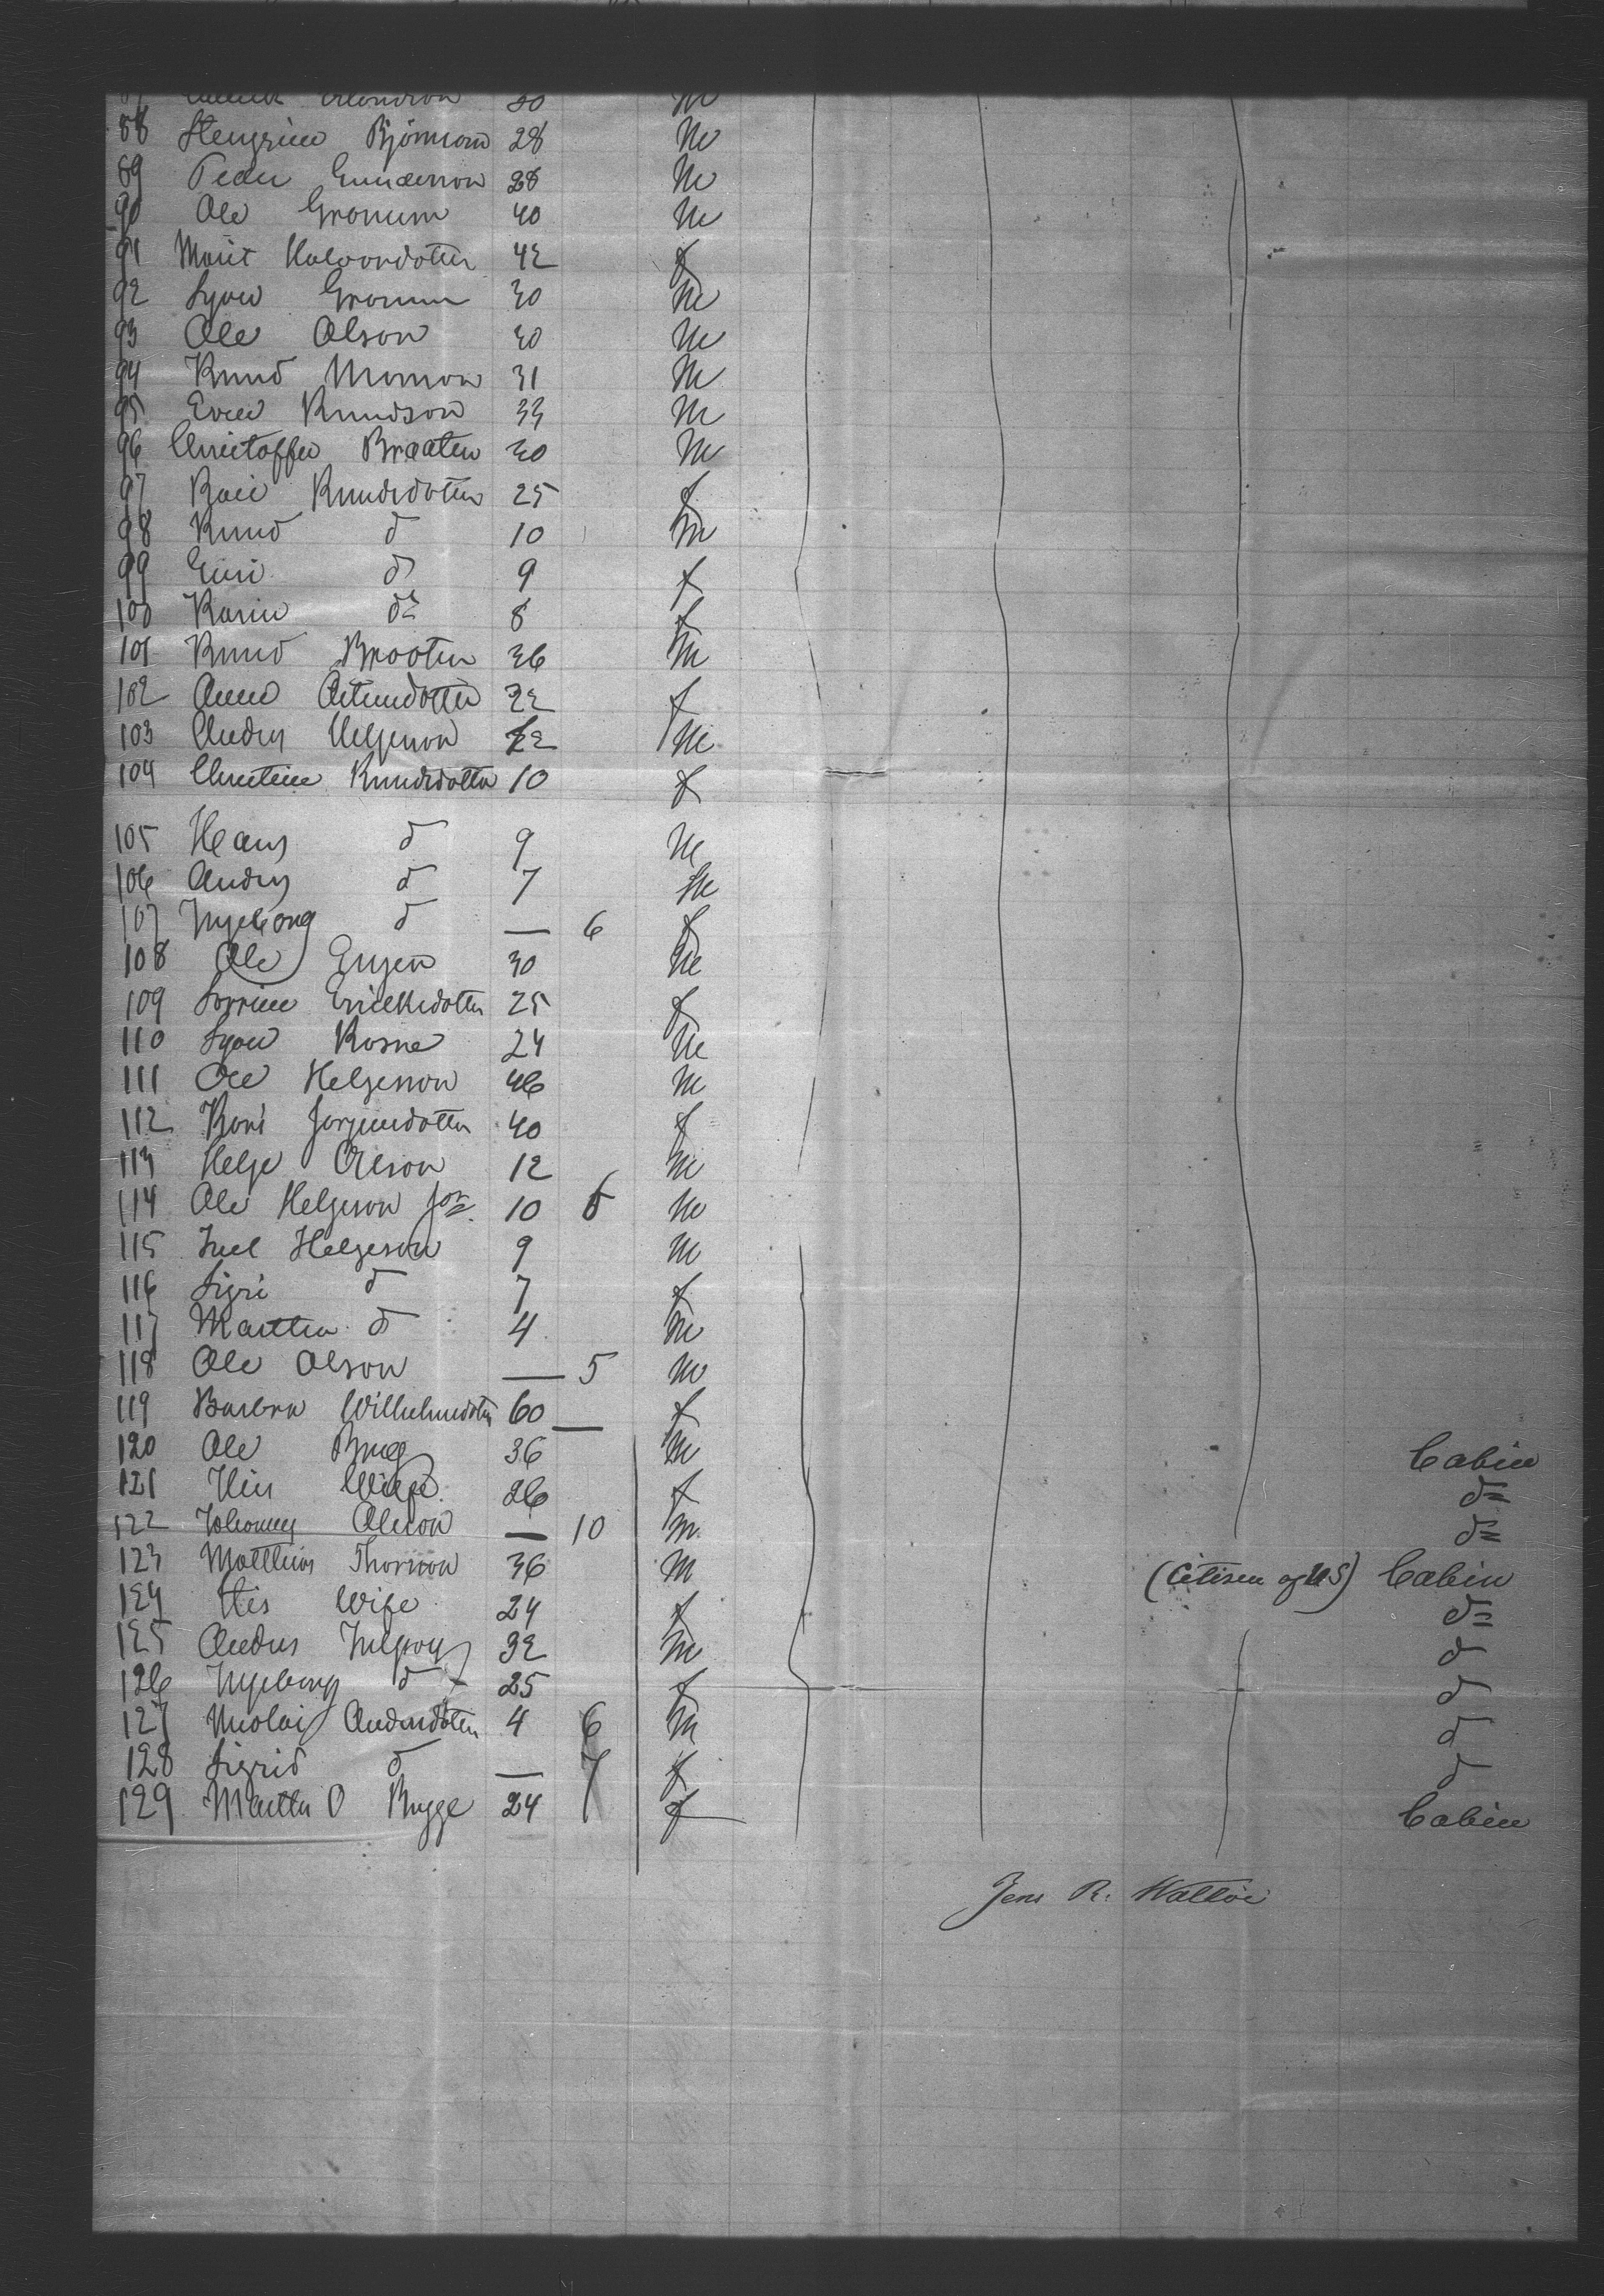 88 Bjørnson 28 M
89 Peder Gunderson 28 M
90 Ole Gronum 40 M
91 Marit Halvordotter 42 f
92 Syver Gronum 30 M
93 Ole Olson 30 M
94 Knud Monson 31 M
95 Even Knudson 33 M
96 Christoffer Braaten 30 M
97 Kari Knudsdotter 25 f
98 Knud d 10 M
99 Guri d 9 f
100 Karin do 8 f
101 Knud Braaten 36 M
102 Anne 32 f
103 Anders Helgeson M
104 Christine Knudsdotter 10 f
105 Hans d 9 M
106 Anders d 7 M
107 Ingeborg d — 6 f
108 Ole 30 M
109 Ericksdotter 25 f
110 Syver Rosne 24 M
111 Ole Helgeson 46 M
112 Kari 40 f
113 Helge Olson 12 M
114 Ole Helgeson Jor 10 6 M
115 Helgeson 9 M
116 Sigri d 7 f
117 d 4 M
118 Ole Olson — 5 M
119 Barbra 60 — f
120 Ole 36 M Cabin
121 His Wife 26 f do
122 — 10 M do
123 Matthias Thorson 36 M (Citisen of US) Cabin
124 His Wife 24 f do
125 32 M d
126 Ingeborg d 25 f d
127 Nicolai 4 6 M d
128 Sigrid d — 7 f d
129 Martha O Bugge 24 f Cabin
Jens R. Walløe